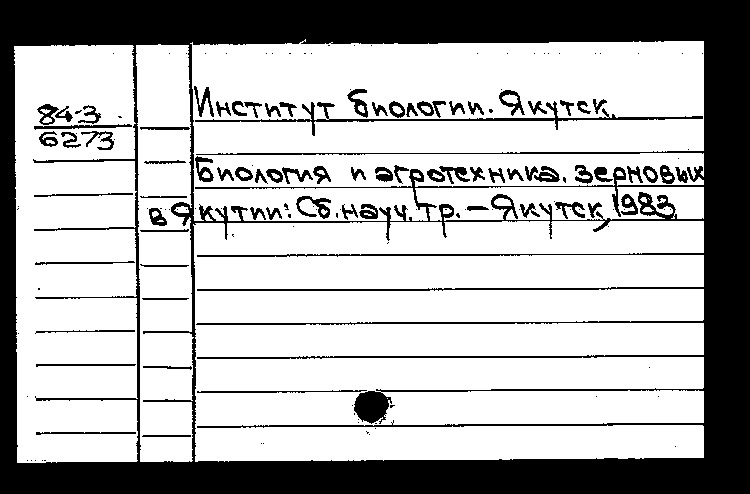 Институт биологии. Якутск.
84-3
6273
Биология и агротехника. зерновых
в Якутии: Сб. науч. тр. – Якутск, 1983